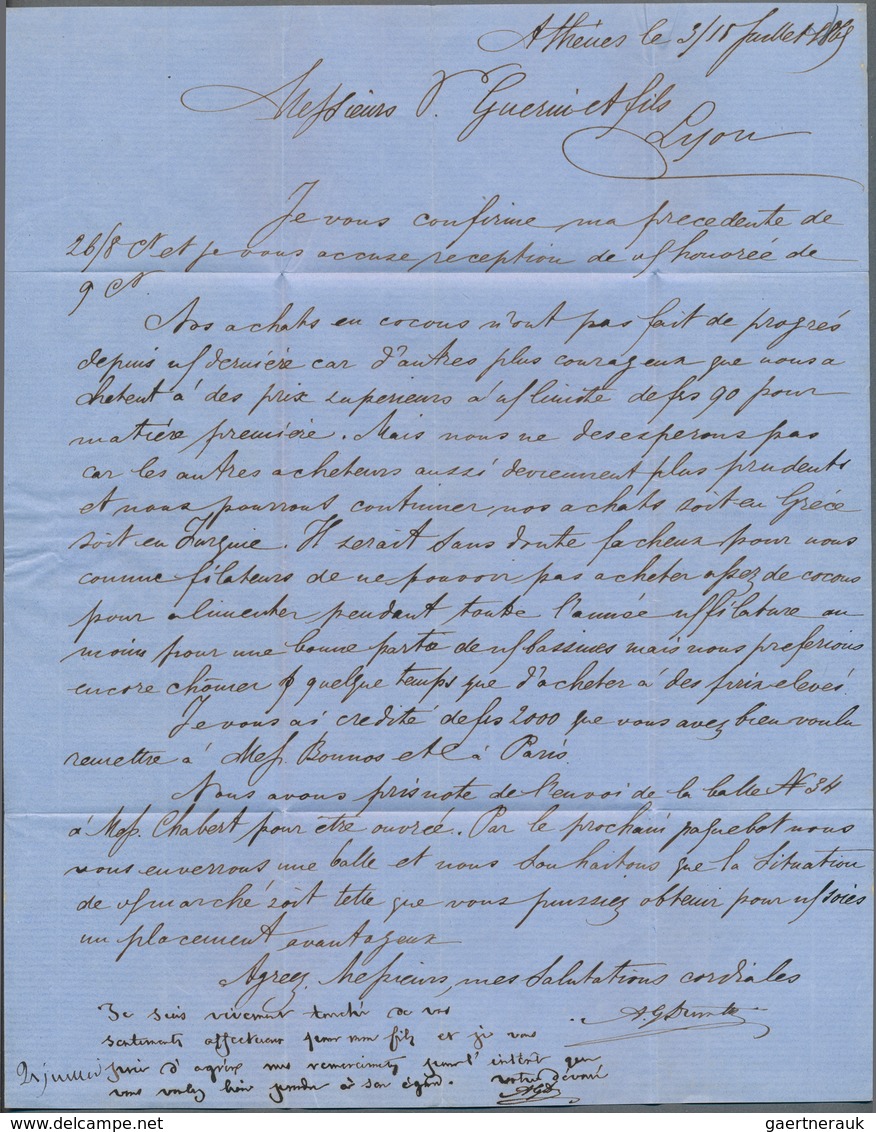 Athènes le 3/15 Juillet 1865
Messieurs V. Guerin et fils
Lyon
Je vous confirme ma precedente de
26/8 Ct et je vous accuse reception de vs honorée de
9 Ct
Nos achats en cocons n'ont pas fait de progrés
depuis ns derniére car d'autres plus courageux que nous a
chetent á des prix superieurs á vs limite de frs 90 pour
matiére premiére. Mais nous ne desesperons pas
car les autres acheteurs aussi deviennent plus prudents
et nous pourrons continuer nos achats soit en Gréce
soit en Turquie. Il serait sans doute facheux pour nous
comme filateurs de ne pouvoir pas acheter assez de cocons
pour alimenter pendant toute l'année ns filature au
moins pour une bonne partie de ns bassines mais nous preferions
encore chômer quelque temps que d'acheter á des prix elevés.
Je vous ai credité de frs 2000 que vous avez bien voulu
remettre á Mess. Bonnos et C á Paris.
Nous avons pris note de l'envoi de la balle N 34
á Mess. Chabert pour être ouvrée. Par le prochain paquebot nous
vous enverrons une balle et nous souhaitons que la situation
de vs marché soit telle que vous puissiez obtenir pour ns soies
un placement avantageux
Agreez, Messieurs, mes salutations cordiales
Je suis vivement touché de vos
sentiments affectueux pour mon fils et je vous
prie d'agréer mes remerciments pour l'intérêt que
vous voulez bien prendre à son égard. votre dévoué
21 juillet
gaertnerauk.com